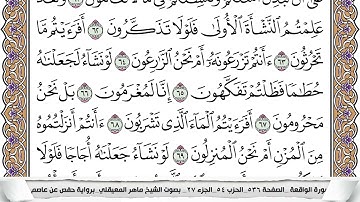 عَلِمْتُمُ ٱلنَّشْأَةَ ٱلْأُولَىٰ فَلَوْلَا تَذَكَّرُونَ ٦٢ أَفَرَءَيْتُم مَّا
تَحْرُثُونَ ٦٣ ءَأَنتُمْ تَزْرَعُونَهُۥٓ أَمْ نَحْنُ ٱلزَّٰرِعُونَ ٦٤ لَوْ نَشَآءُ لَجَعَلْنَٰهُ
حُطَٰمًا فَظَلْتُمْ تَفَكَّهُونَ ٦٥ إِنَّا لَمُغْرَمُونَ ٦٦ بَلْ نَحْنُ
مَحْرُومُونَ ٦٧ أَفَرَءَيْتُمُ ٱلْمَآءَ ٱلَّذِى تَشْرَبُونَ ٦٨ ءَأَنتُمْ أَنزَلْتُمُوهُ
مِنَ ٱلْمُزْنِ أَمْ نَحْنُ ٱلْمُنزِلُونَ ٦٩ لَوْ نَشَآءُ جَعَلْنَٰهُ أُجَاجًا فَلَوْلَا
سورة الواقعة _ الصفحة ٥٣٦ _ الحزب ٥٤ _ الجزء ٢٧ _ بصوت الشيخ ماهر المعيقلي _ برواية حفص عن عاصم